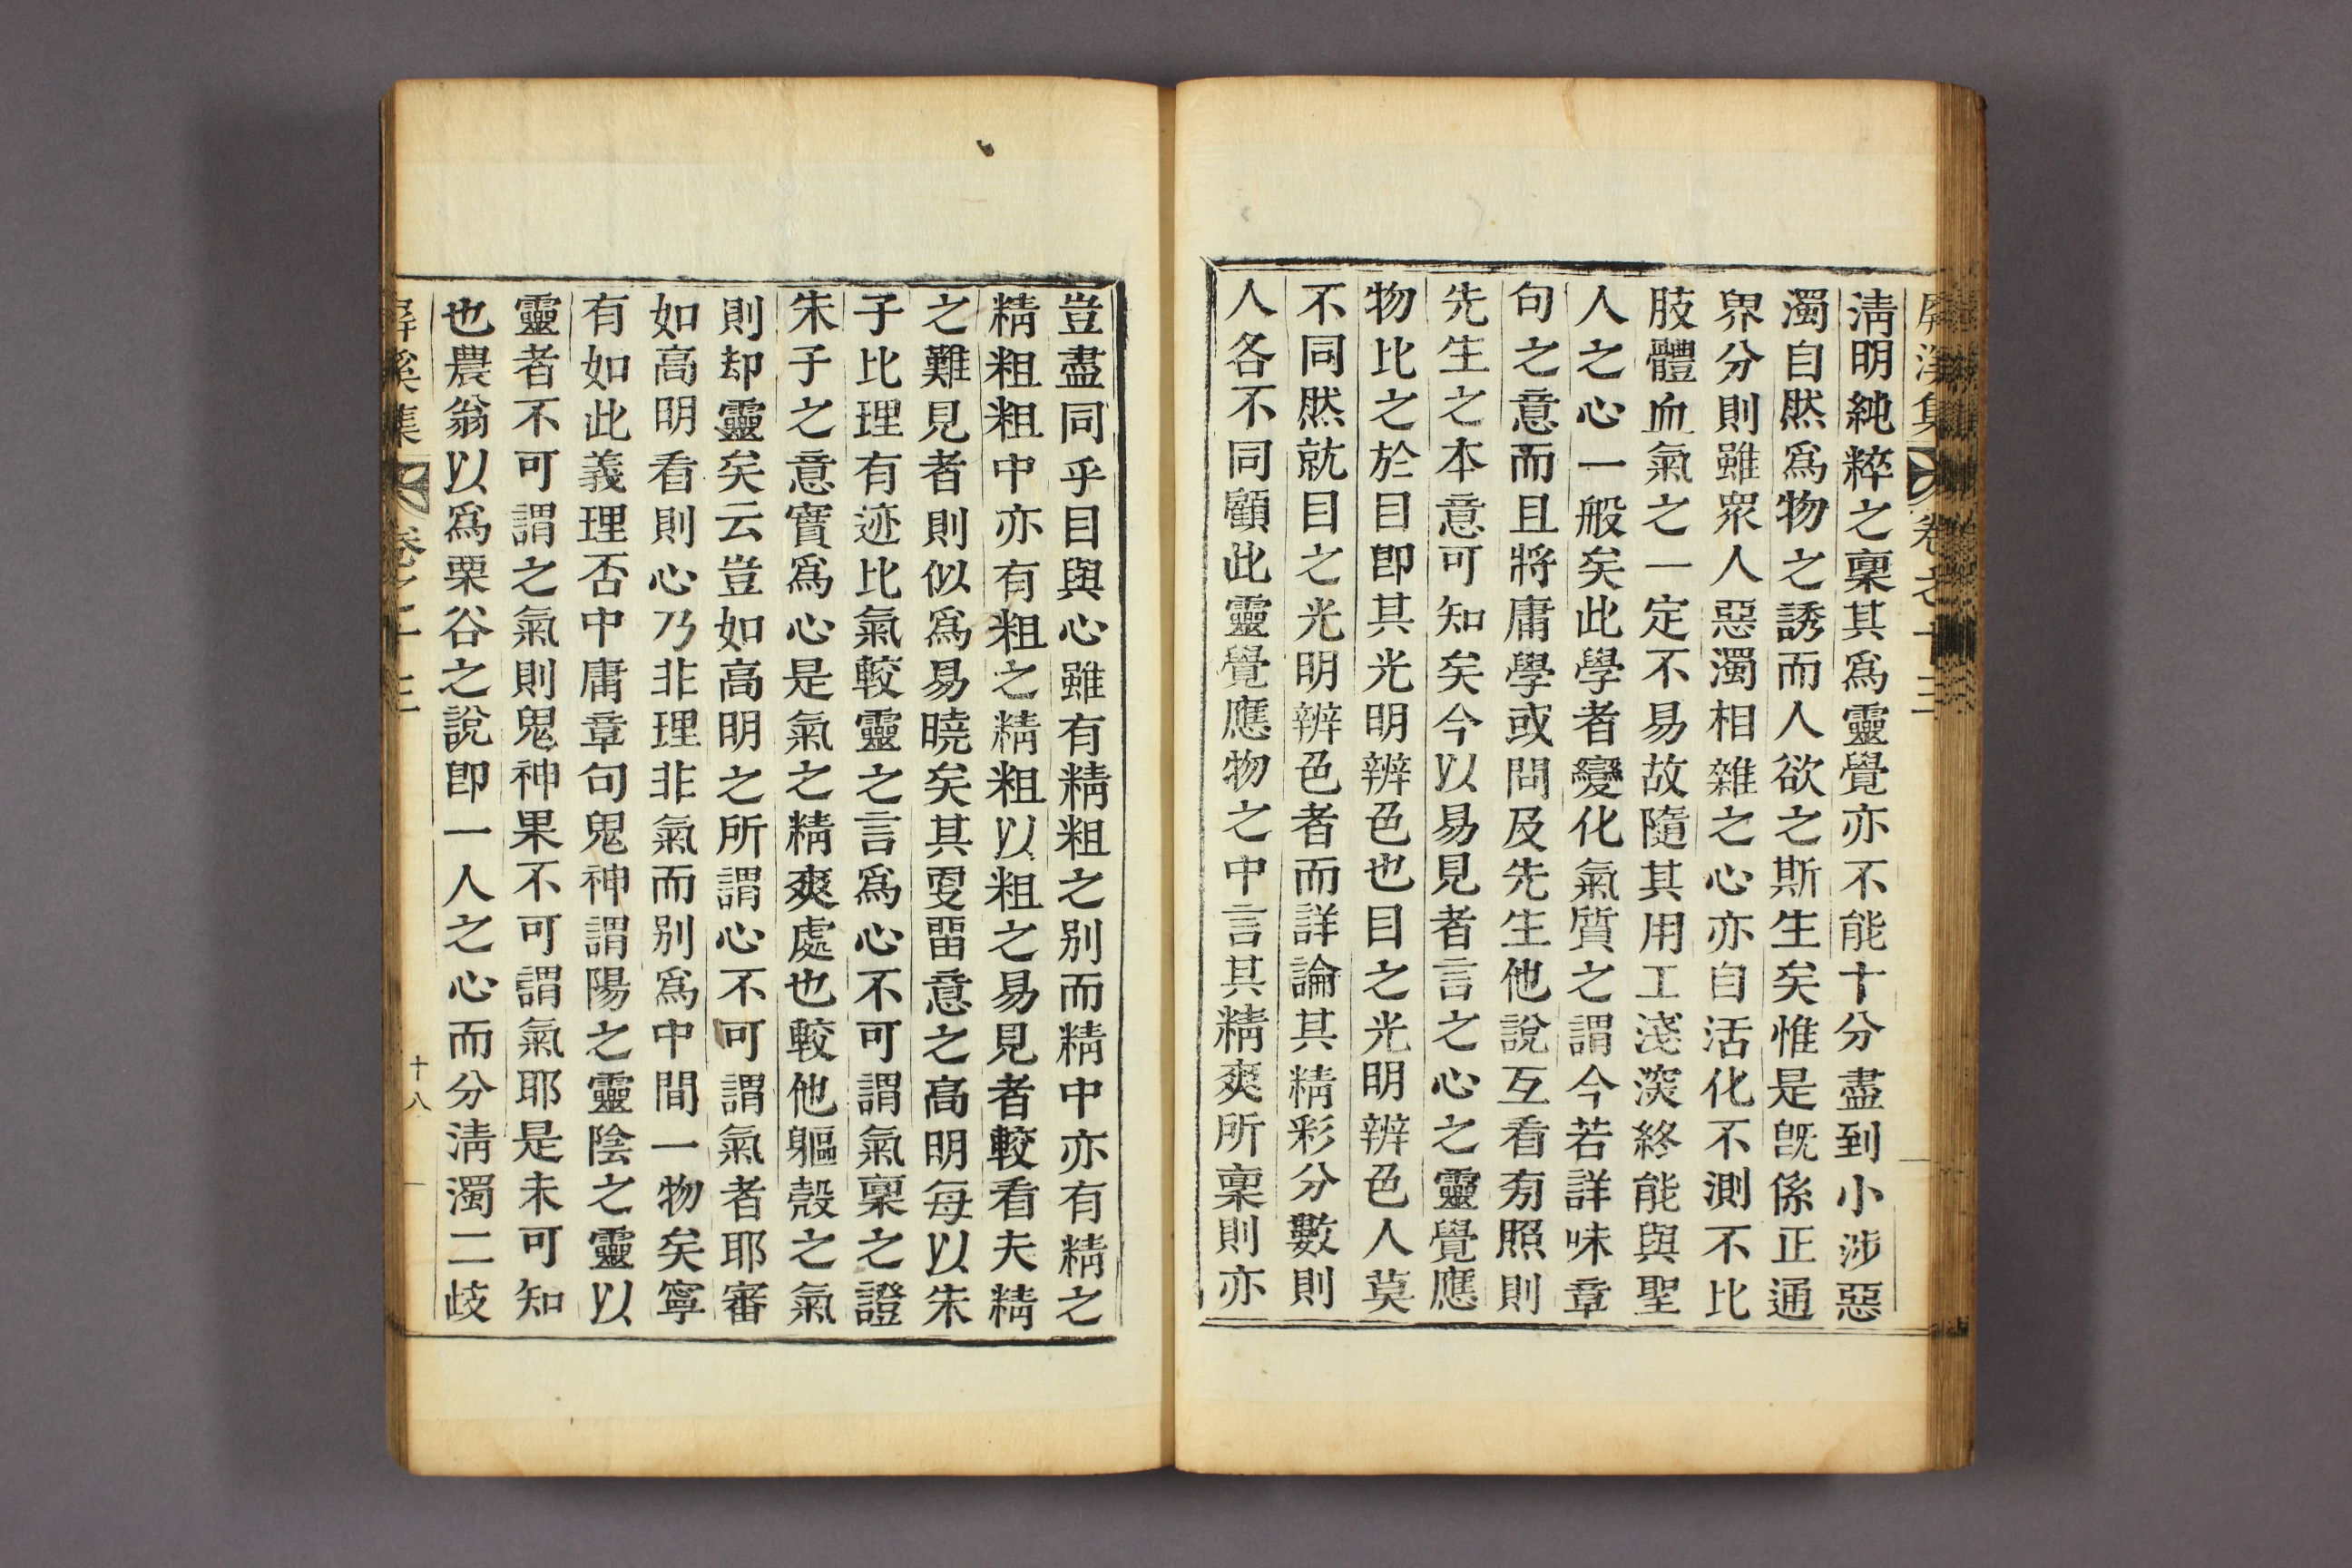 屛溪集 卷之十三
淸明純粹之稟其爲靈覺亦不能十分盡到小涉惡
濁自然爲物之誘而人欲之斯生矣惟是旣係正通
界分則雖衆人惡濁相雜之心亦自活化不測不比
肢體血氣之一定不易故隨其用工淺深終能與聖
人之心一般矣此學者變化氣質之謂今若詳味章
句之意而且將庸學或問及先生他說互看旁照則
先生之本意可知矣今以易見者言之心之靈覺應
物比之於目卽其光明辨色也目之光明辨色人莫
不同然就目之光明辨色者而詳論其精彩分數則
人各不同顧此靈覺應物之中言其精爽所稟則亦
豈盡同乎目與心雖有精粗之別而精中亦有精之
精粗粗中亦有粗之精粗以粗之易見者較看夫精
之難見者則似爲易曉矣其更留意之高明每以朱
子比理有迹比氣較靈之言爲心不可謂氣稟之證
朱子之意實爲心是氣之精爽處也較他軀殼之氣
則却靈矣云豈如高明之所謂心不可謂氣者耶審
如高明看則心乃非理非氣而別爲中間一物矣寧
有如此義理否中庸章句鬼神謂陽之靈陰之靈以
靈者不可謂之氣則鬼神果不可謂氣耶是未可知
也農翁以爲栗谷之說卽一人之心而分淸濁二歧
屛溪集 卷之十三 十八